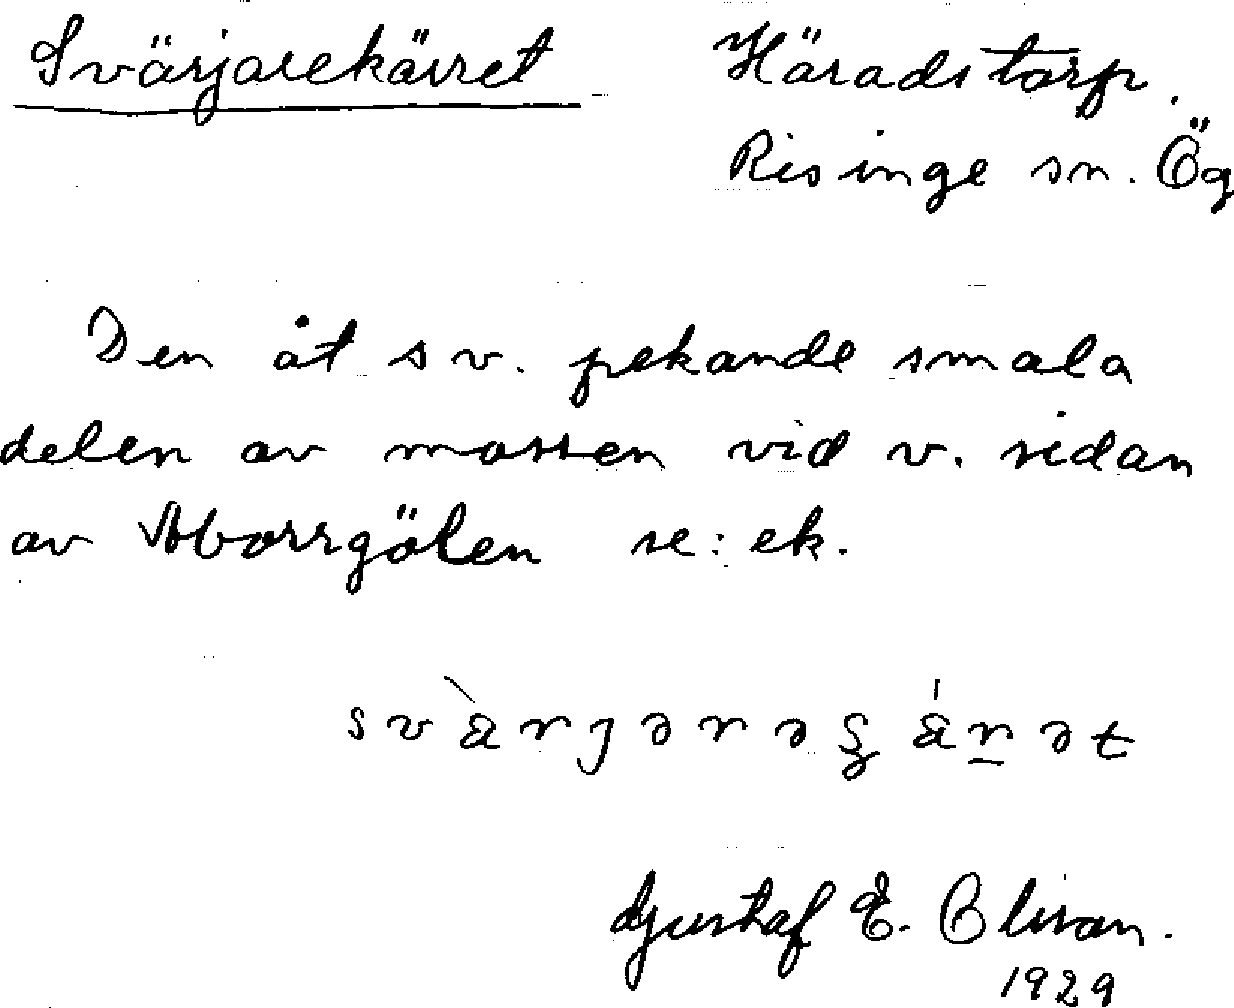 Svärjarekärret Häradstorp.
Risinge sn. Ög
Den åt sv. pekande smala
delen av mossen vid v. sidan
av Aborrgölen se: ek.
Gustaf E.
1929